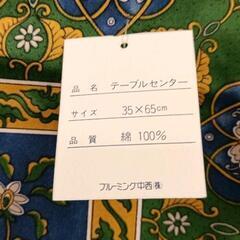 品名 テーブルセンター
サイズ 35×65cm
品質 綿 100%
ブルーミング中西(株)